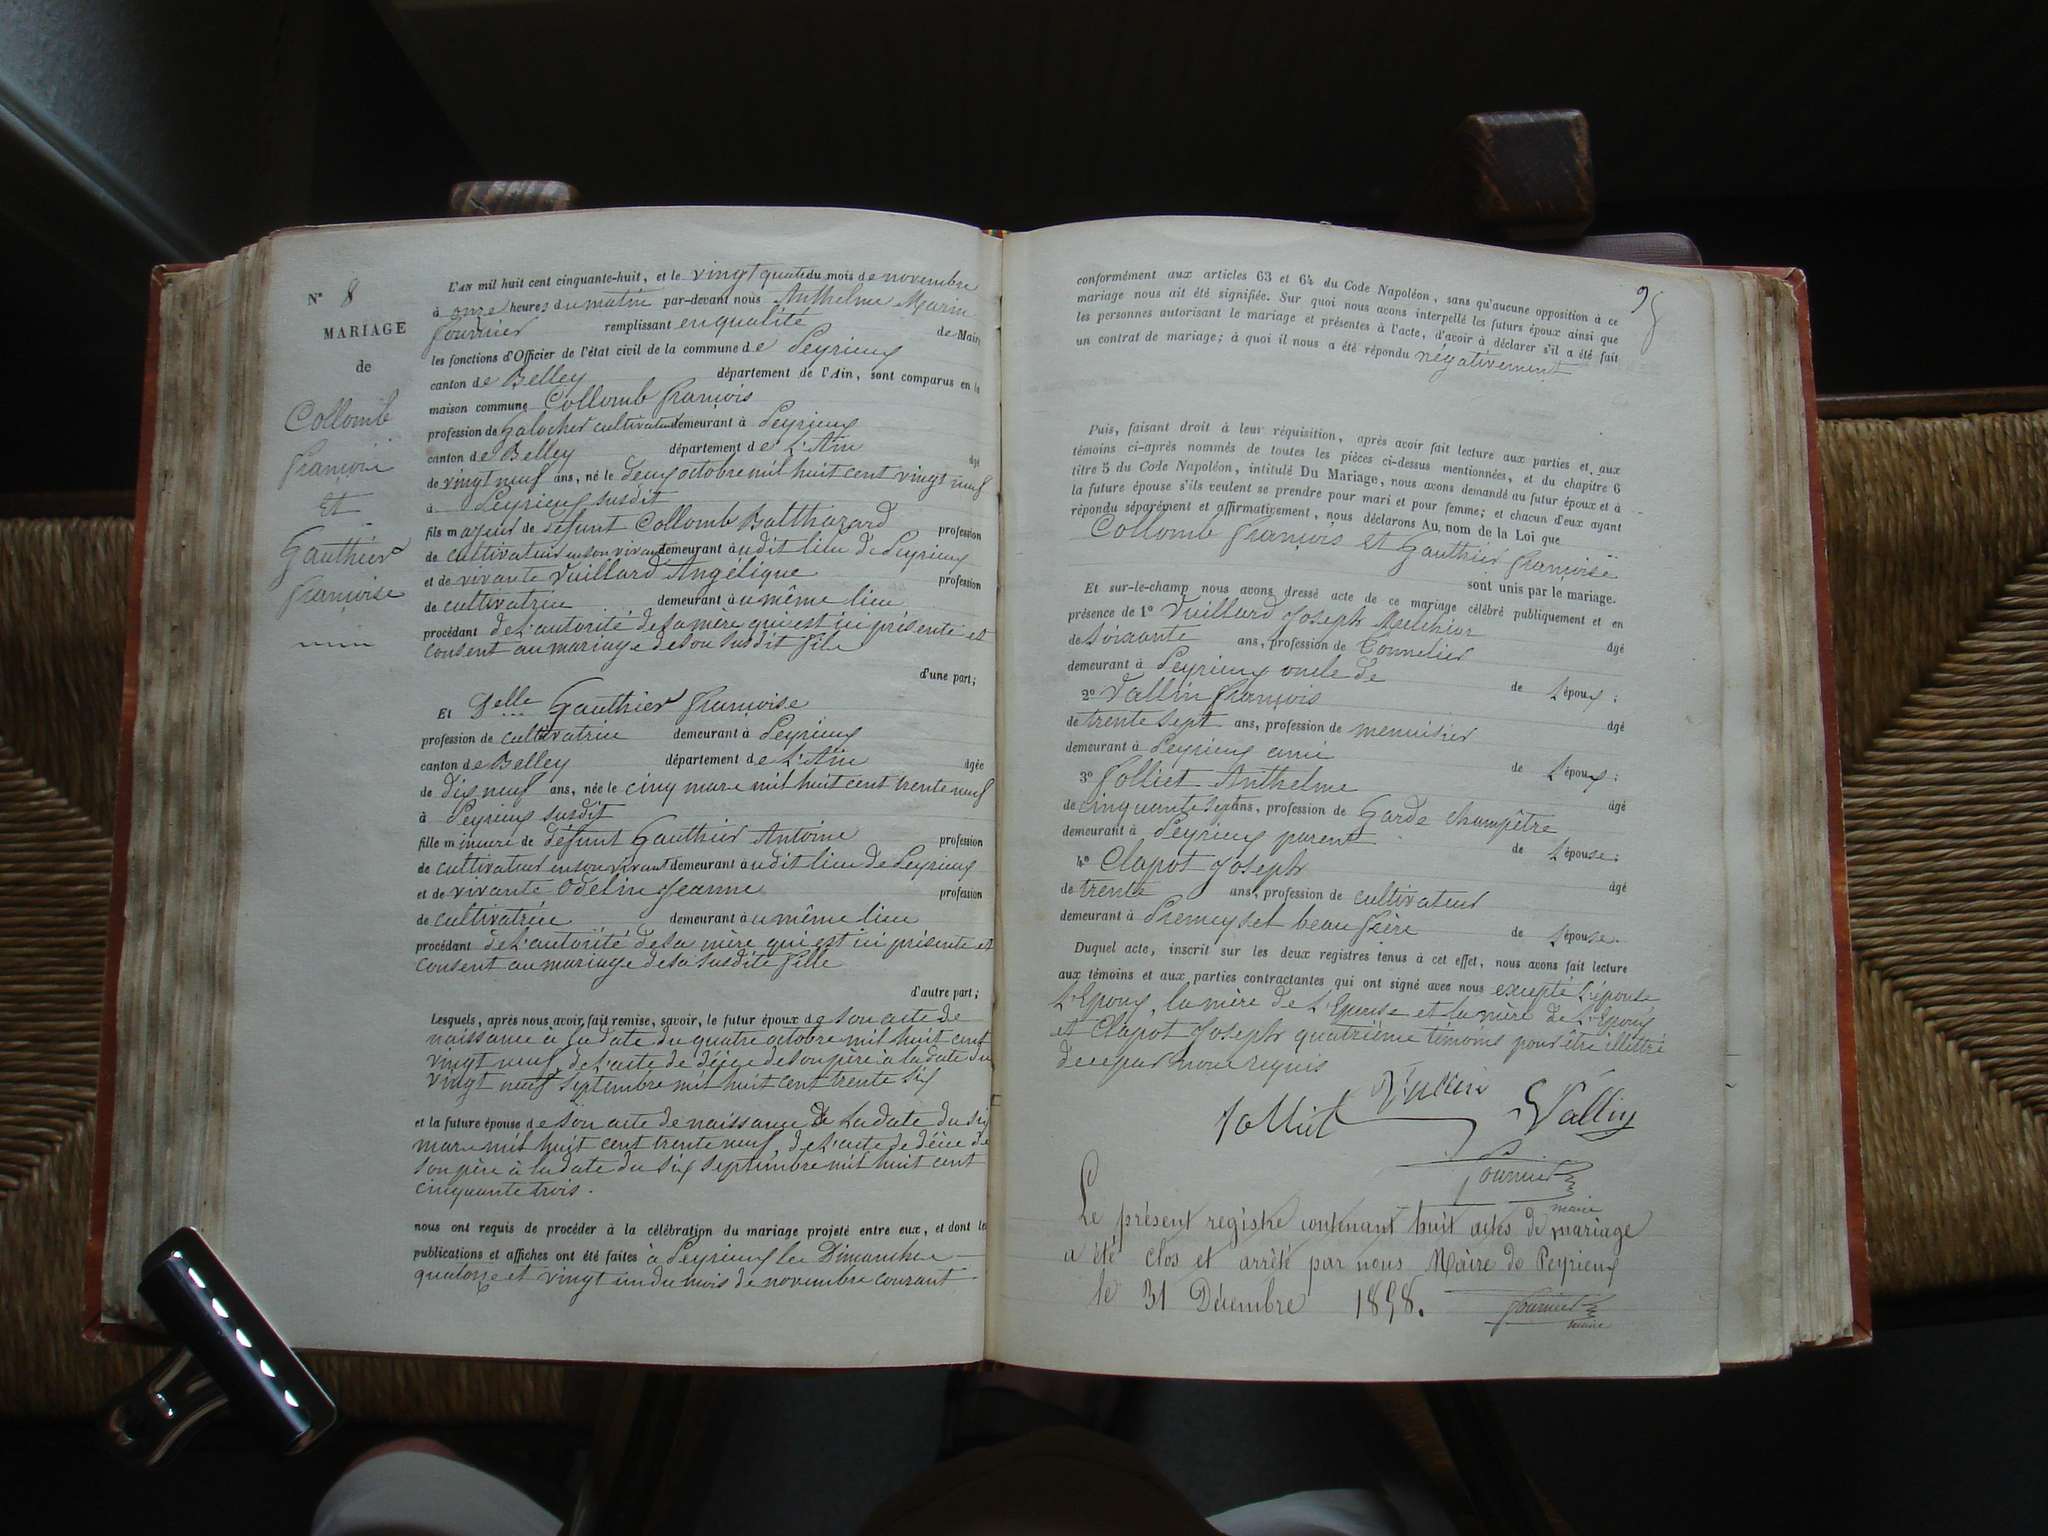 N° 8
MARIAGE
de
Collomb
françois
et
Gauthier
françoise
L'AN mil huit cent cinquante-huit, et le vingt quatre du mois de novembre
à onze heures du matin par-devant nous Anthelme Marin
fournier remplissant en qualité de Maire
les fonctions d'Officier de l'état civil de la commune de Peyrieux
canton de Belley département de l'Ain, sont comparus en la
maison commune Collomb françois
profession de Galocher cultivateur demeurant à Peyrieux
canton de Belley département de L'Ain âgé
de vingt neuf ans, né le deux octobre mil huit cent vingt neuf
à Peyrieux susdit
fils majeur de défunt Collomb Balthazard profession
de cultivateur en son vivant demeurant audit lieu de Peyrieux
et de vivante Vuillard Angélique profession
de cultivatrice demeurant au même lieu
procédant de L'autorité de sa mère qui est ici présente et
consent au mariage de son susdit fils
d'une part;
Et Delle Gauthier françoise
profession de cultivatrice demeurant à Peyrieux
canton de Belley département de L'Ain âgée
de dix neuf ans, née le cinq mars mil huit cent trente neuf
à Peyrieux susdit
fille mineure de défunt Gauthier Antoine profession
de cultivateur en son vivant demeurant audit lieu de Peyrieux
et de vivante Odelin Jeanne profession
de cultivatrice demeurant au même lieu
procédant de L'autorité de sa mère qui est ici présente et
consent au mariage de sa susdite fille
d'autre part;
Lesquels, après nous avoir fait remise, savoir, le futur époux de son acte de
naissance à la date du quatre octobre mil huit cent
vingt neuf, de L'acte de décès de son père à la date du
vingt neuf septembre mil huit cent trente six
et la future épouse de son acte de naissance à La date du six
mars mil huit cent trente neuf, de L'acte de décès de
son père à la date du six septembre mil huit cent
cinquante trois.
nous ont requis de procéder à la célébration du mariage projeté entre eux, et dont les
publications et affiches ont été faites à Peyrieux les Dimanches
quatorze et vingt un du mois de novembre courant
95
conformément aux articles 63 et 64 du Code Napoléon, sans qu'aucune opposition à ce
mariage nous ait été signifiée. Sur quoi nous avons interpellé les futurs époux ainsi que
les personnes autorisant le mariage et présentes à l'acte, d'avoir à déclarer s'il a été fait
un contrat de mariage; à quoi il nous a été répondu négativement
Puis, faisant droit à leur réquisition, après avoir fait lecture aux parties et aux
témoins ci-après nommés de toutes les pièces ci-dessus mentionnées, et du chapitre 6
titre 5 du Code Napoléon, intitulé Du Mariage, nous avons demandé au futur époux et à
la future épouse s'ils veulent se prendre pour mari et pour femme; et chacun d'eux ayant
répondu séparément et affirmativement, nous déclarons Au nom de la Loi que
Collomb françois et Gauthier françoise
sont unis par le mariage.
Et sur-le-champ nous avons dressé acte de ce mariage célébré publiquement et en
présence de 1° Vuillard Joseph Melchior âgé
de soixante ans, profession de Tonnelier
demeurant à Peyrieux oncle de de L'époux;
2° Vallin françois âgé
de trente sept ans, profession de menuisier
demeurant à Peyrieux ami de L'époux;
3° Folliet Anthelme âgé
de cinquante sept ans, profession de Garde champêtre
demeurant à Peyrieux parent de L'épouse;
4° Clapot Joseph âgé
de trente ans, profession de cultivateur
demeurant à Premeyset beau frère de L'épouse.
Duquel acte, inscrit sur les deux registres tenus à cet effet, nous avons fait lecture
aux témoins et aux parties contractantes qui ont signé avec nous excepté L'épouse
L'Epoux, la mère de L'Epouse et la mère de L'Epoux
et Clapot Joseph quatrième témoins pour être illettré
de ce par nous requis
folliet
Vallin
fournier
maire
Le présent registre contenant huit actes de mariage
a été clos et arrêté par nous Maire de Peyrieux
le 31 Décembre 1858.
fournier
maire